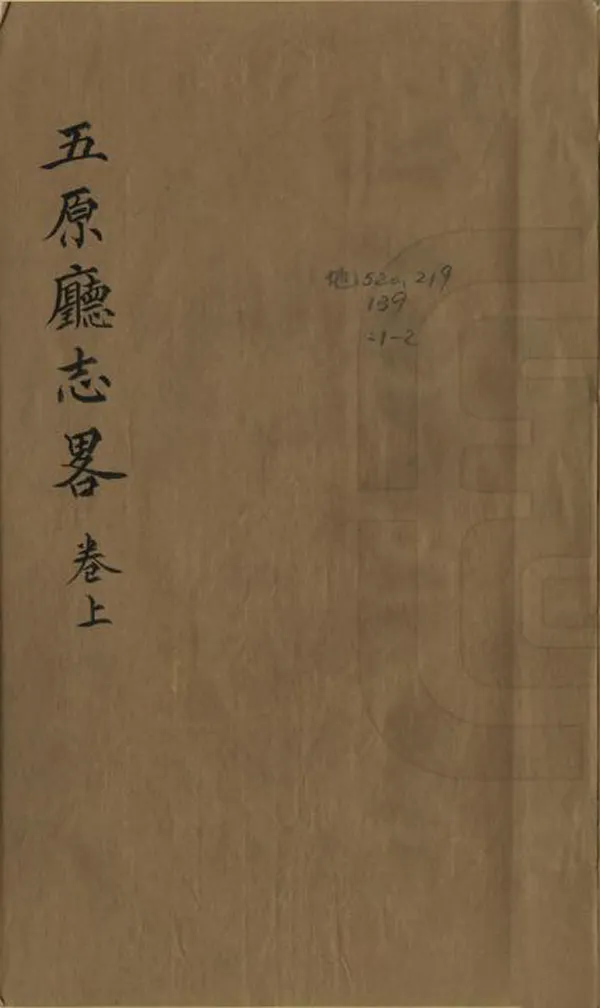 五原廳志畧 卷上
地520.219
139
:1-2